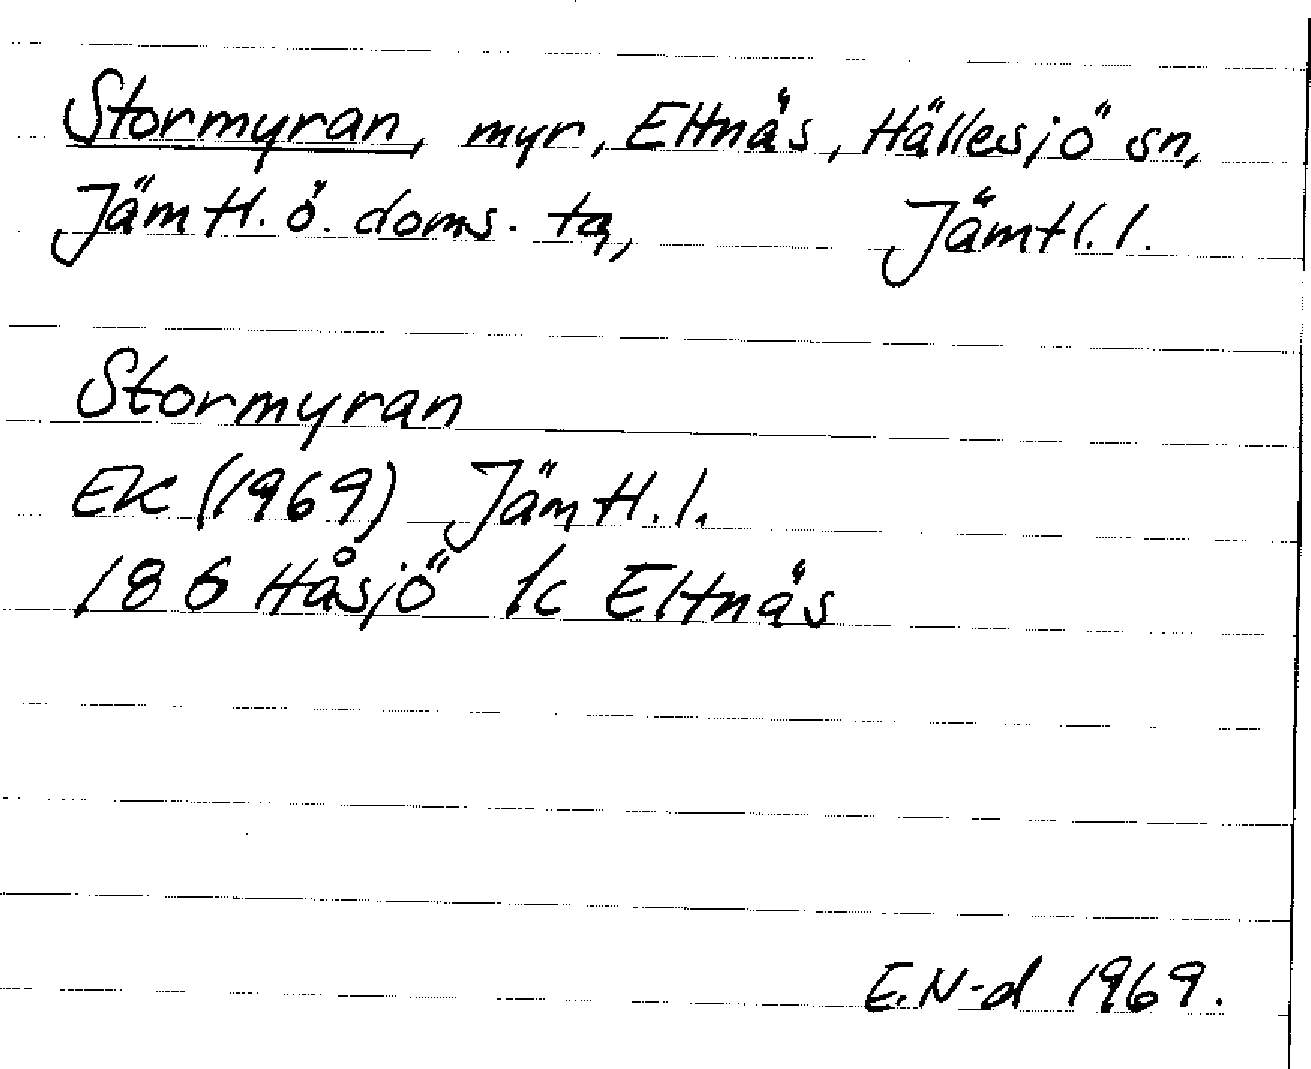 Stormyran, myr, Eltnäs, Hällesjö sn,
Jämtl. ö. doms. tg, Jämtl. l.
Stormyran
EK (1969) Jämtl. l.
186 Håsjö 1c Eltnäs
E.N-d 1969.